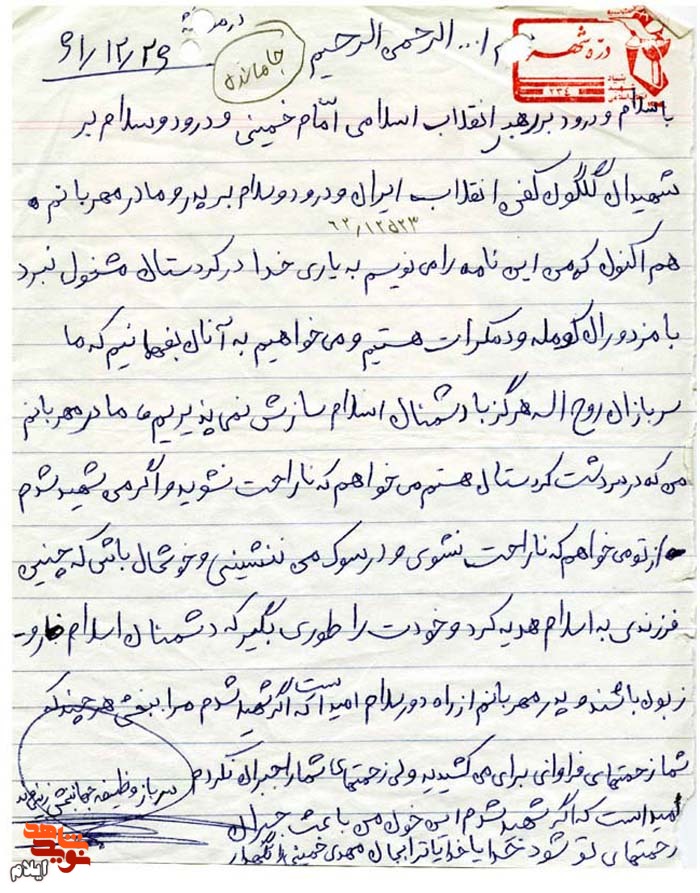 بسم ا... الرحمن الرحیم
۶۱/۱۲/۲۶
جامانده
دره شهر
بنیاد
۲۳۴
باسلام و درود بر رهبر انقلاب اسلامی امام خمینی و درود و سلام بر
شهیدان گلگون کفن انقلاب ایران و درود و سلام بر پدر و مادر مهربانم
۶۲/۱۲۵۲۳
هم اکنون که من این نامه را می نویسم به یاری خدا در کردستان مشغول نبرد
با مزدوران کومله و دمکرات هستیم و می خواهیم به آنان بفهمانیم که ما
سربازان روح اله هرگز با دشمنان اسلام سازش نمی پذیریم، مادر مهربانم
من که در سردشت کردستان هستم می خواهم که ناراحت نشوید و اگر من شهید شدم
از تو می خواهم که ناراحت نشوی و در سوک من ننشینی و خوشحال باشی که چنین
فرزندی به اسلام هدیه کرد و خودت را طوری بگیر که دشمنان اسلام خار و
زبون باشند و پدر مهربانم از راه دور سلام امید است که اگر شهید شدم مرا ببخشی هر چند که
شما زحمتهای فراوانی برای من کشیدید ولی زحمتهای شما را جبران نکردم
سرباز وظیفه جهانبخش
امید است که اگر شهید شدم این خون من باعث جبران
زحمتهای تو شود خدایا خدایا تو را بجان مهدی خمینی را نگهدار
نوید شاهد
ایلام